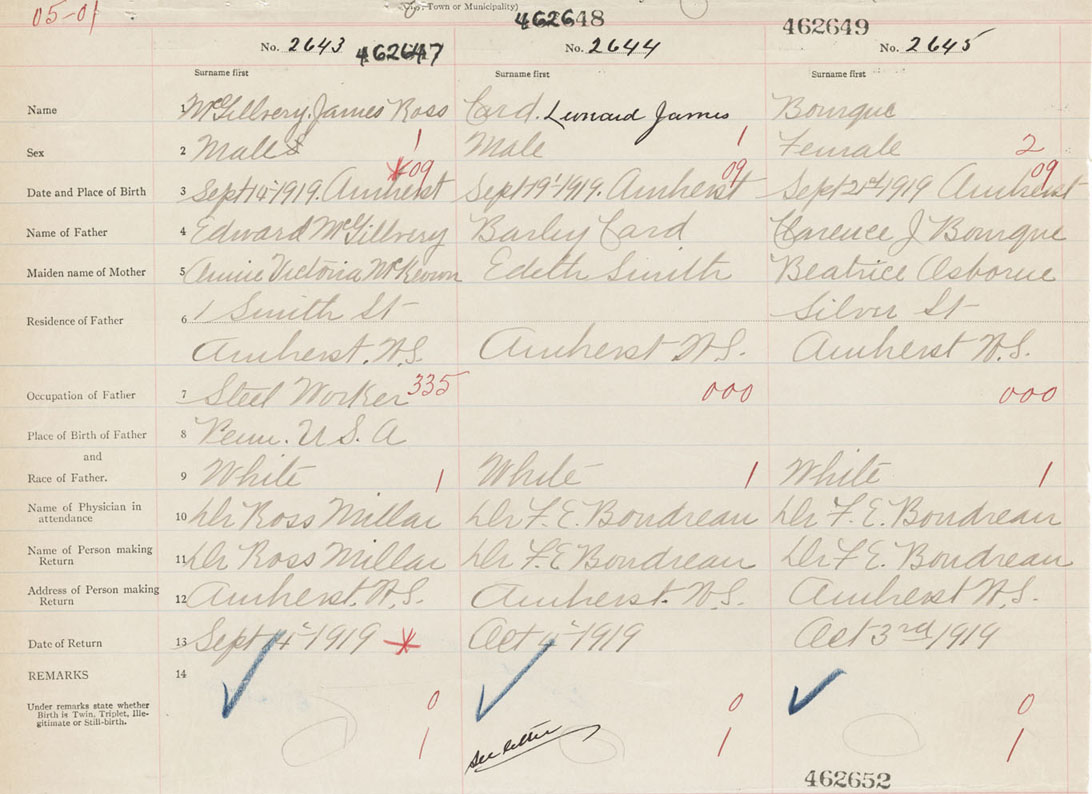 05-01
Town or Municipality)
462648
462649
No. 2643 462647 No. 2644 No. 2645
Surname first Surname first Surname first
Name 1 McGillvery, James Ross Card. Leonard James Bourque
Sex 2 Male 1 Male 1 Female 2
09 09 09
Date and Place of Birth 3 Sept 14" 1919. Amherst Sept 19' 1919. Amherst Sept 21st 1919 Amherst
Name of Father 4 Edward McGillvery Barley Card Clarence J Bourque
Maiden name of Mother 5 Annie Victoria McKeown Edith Smith Beatrice Osborne
Residence of Father 6 1 Smith St Silver St
Amherst. N.S. Amherst N.S. Amherst N.S.
Occupation of Father 7 Steel Worker 335 000 000
Place of Birth of Father 8 Penn. U.S.A
and
Race of Father. 9 White 1 White 1 White 1
Name of Physician in
attendance 10 Dr Ross Millar Dr F. E. Boudreau Dr F. E. Boudreau
Name of Person making
Return 11 Dr Ross Millar Dr F. E Boudreau Dr F E. Boudreau
Address of Person making
Return 12 Amherst. N.S. Amherst. N.S. Amherst N.S.
Date of Return 13 Sept 4" 1919 Oct 4" 1919 Oct 3rd 1919
REMARKS 14
Under remarks state whether
Birth is Twin, Triplet, Ille-
gitimate or Still-birth.
0 0 0
see letter
1 1 1
462652